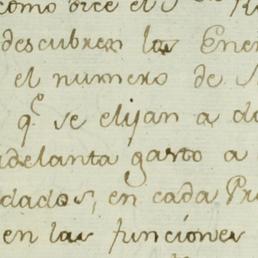 como dice el S
descubren las Ene
el numero de S
q.e se elijan a d
adelanta gasto a
dados, en cada Pr
en las funciones